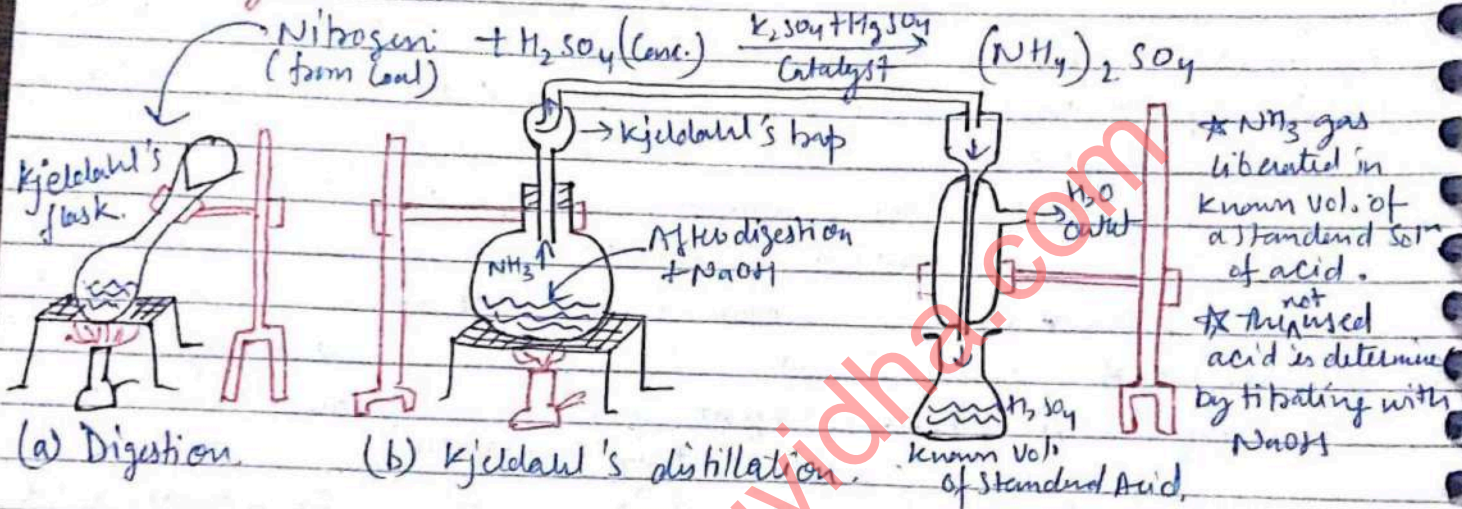 Nitrogen + H2SO4 (Conc.) K2SO4 + HgSO4 (NH4)2SO4
(from Coal) Catalyst
→ Kjeldahl's trap
Kjeldahl's
flask.
NH3 ↑
After digestion
+ NaOH
→ H2O
outlet
* NH3 gas
liberated in
known vol. of
a standard soln
of acid.
* The not used
acid is determine
by titrating with
NaOH
H2SO4
(a) Digestion.
(b) Kjeldahl's distillation.
known vol.
of standard Acid.
vidha.com